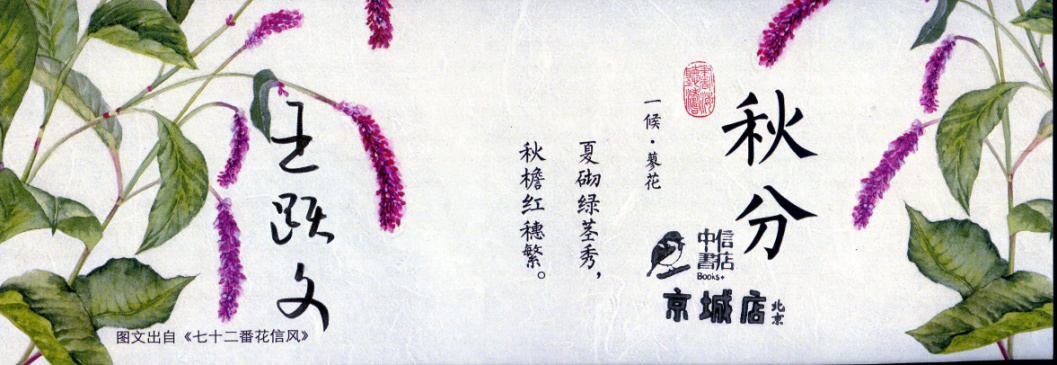 秋分
一候·蓼花
夏砌绿茎秀，
秋檐红穗繁。
中信
書店
Books+
京城店
北京
王跃文
图文出自《七十二番花信风》